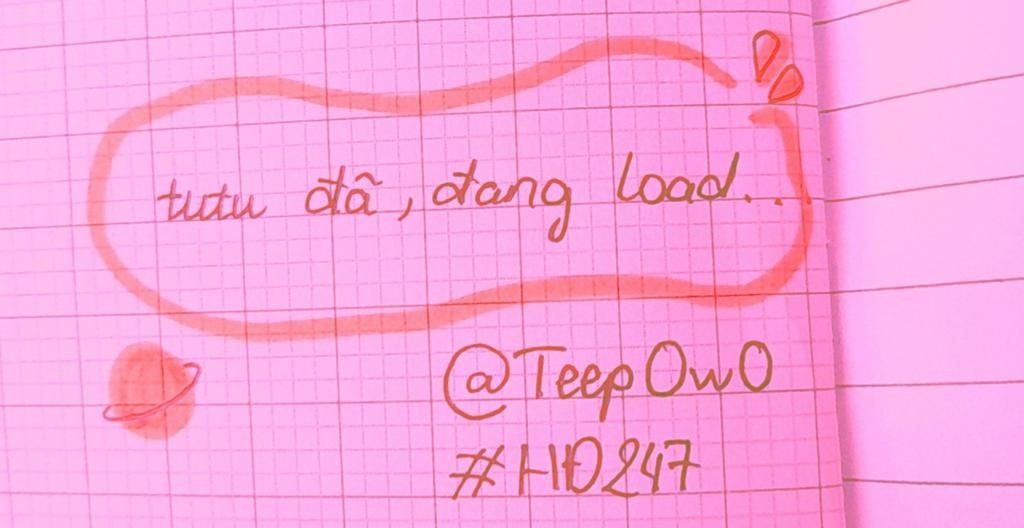 tutu đã, đang load...
@TeepOwO
#HĐ247